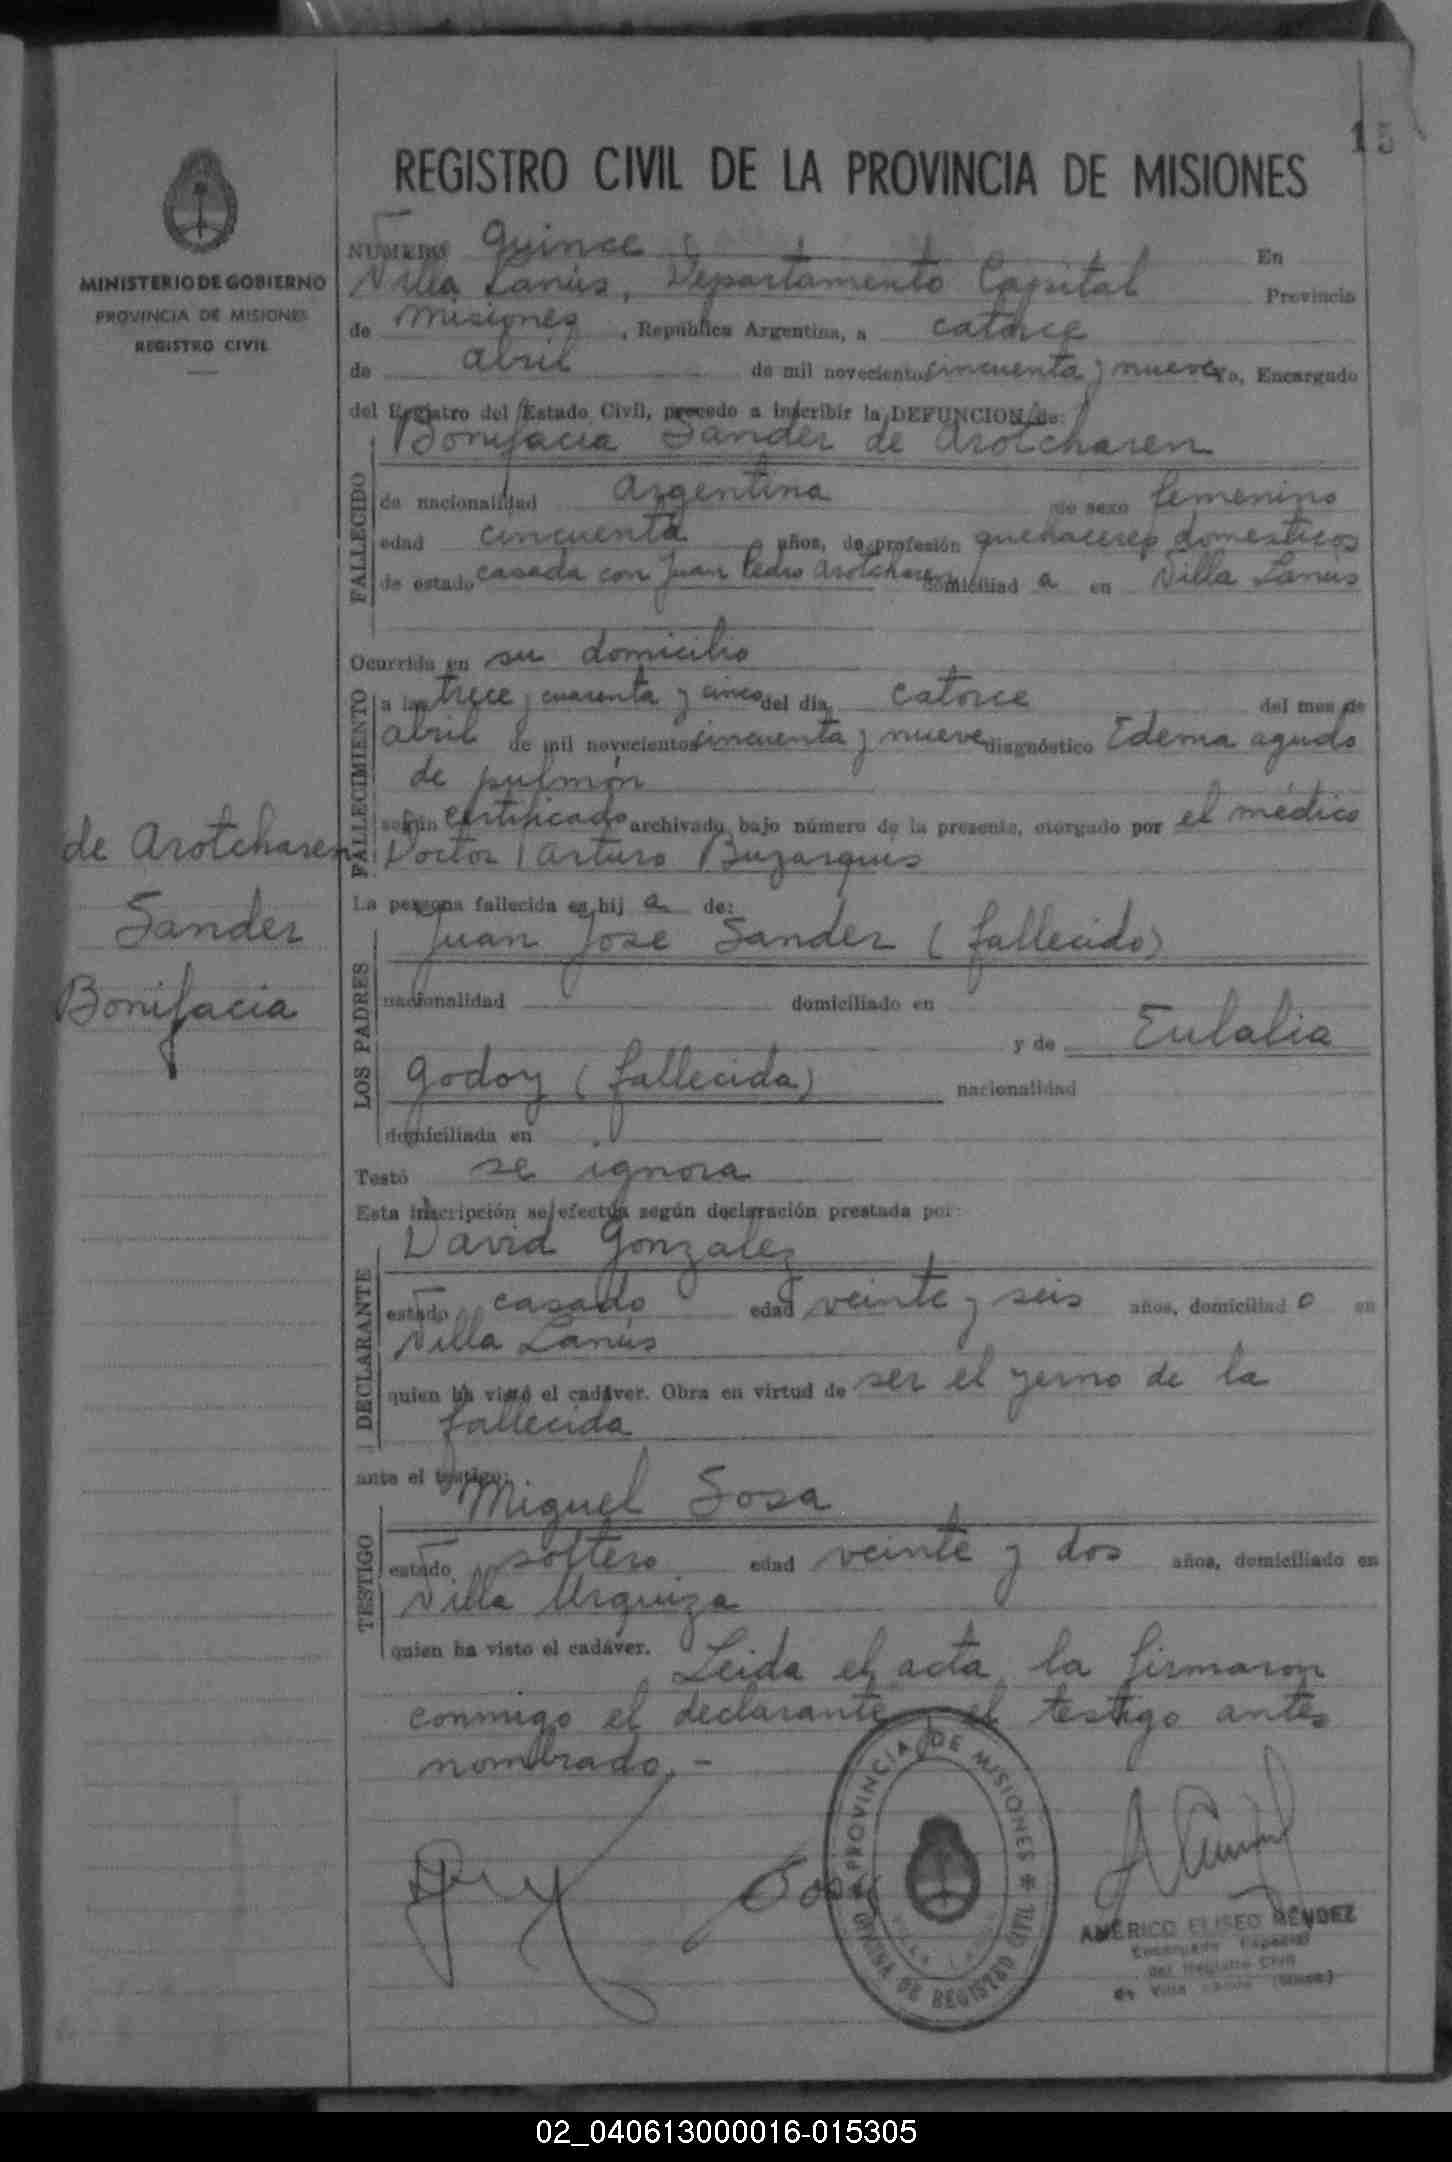 15
REGISTRO CIVIL DE LA PROVINCIA DE MISIONES
MINISTERIO DE GOBIERNO
PROVINCIA DE MISIONES
REGISTRO CIVIL
NUMERO Quince En
Villa Lanús, Departamento Capital Provincia
de Misiones, República Argentina, a catorce
de abril de mil novecientos cincuenta y nueve Yo, Encargado
del Registro del Estado Civil, procedo a inscribir la DEFUNCION de:
Bonifacia Sander de Arotcharen
FALLECIDO
de nacionalidad Argentina de sexo femenino
edad cincuenta años, de profesión quehaceres domesticos
de estado casada con Juan Pedro Arotcharen domiciliad a en Villa Lanús
Ocurrida en su domicilio
FALLECIMIENTO
a las trece, cuarenta y cinco del día catorce del mes de
abril de mil novecientos cincuenta y nueve diagnóstico Edema agudo
de pulmón
según certificado archivado bajo número de la presente, otorgado por el médico
Doctor Arturo Buzarquis
de Arotcharen
Sander
Bonifacia
La persona fallecida es hij a de:
LOS PADRES
Juan Jose Sander (fallecido)
nacionalidad domiciliado en
y de Eulalia
Godoy (fallecida) nacionalidad
domiciliada en
Testó se ignora
Esta inscripción se efectúa según declaración prestada por:
DECLARANTE
David Gonzalez
estado casado edad veinte y seis años, domiciliad o en
Villa Lanús
quien ha visto el cadáver. Obra en virtud de ser el yerno de la
fallecida
ante el testigo:
TESTIGO
Miguel Sosa
estado soltero edad veinte y dos años, domiciliado en
Villa Urquiza
quien ha visto el cadáver. Leida el acta, la firmaron
conmigo el declarante y el testigo antes
nombrado.-
PROVINCIA DE MISIONES
OFICINA DE REGISTRO CIVIL
VILLA LANUS
Sosa
AMERICO ELISEO MENDEZ
Encargado Especial
del Registro Civil
de Villa Lanús (Mnes.)
02_040613000016-015305